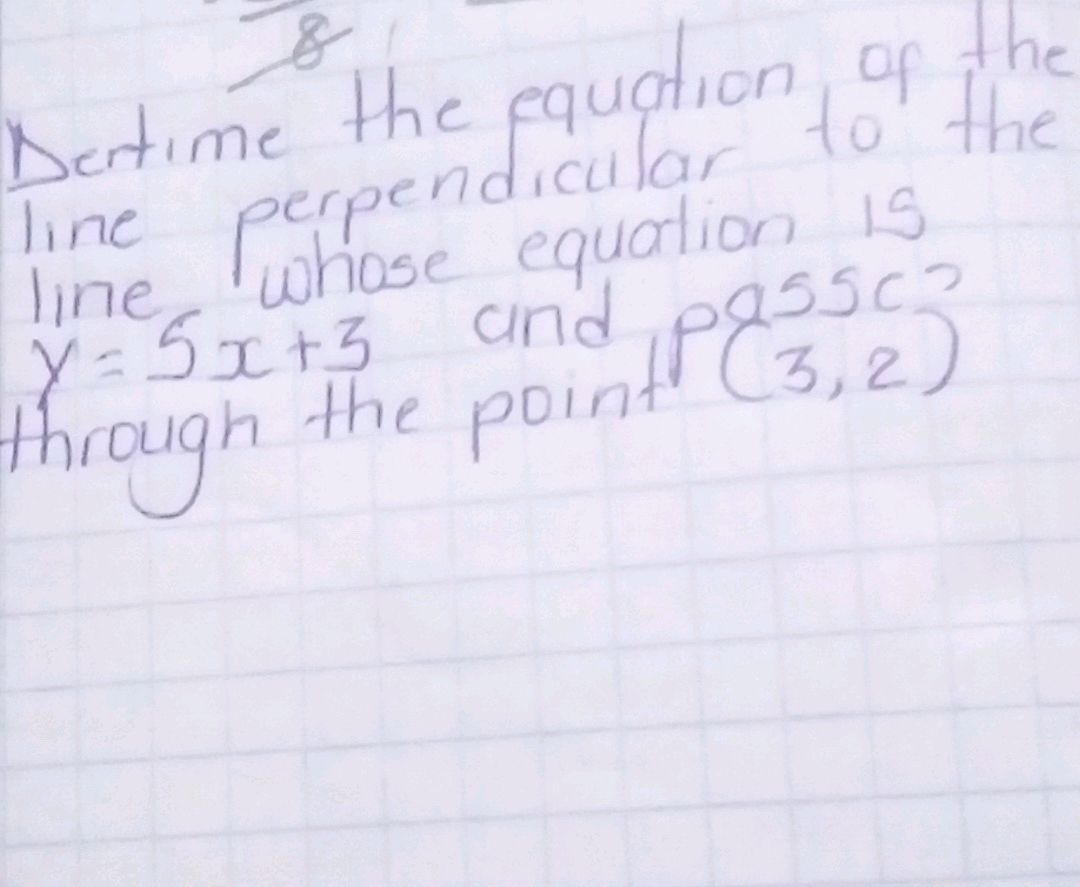 8
Dertime the equation of the
line perpendicular to the
line whose equation is
y = 5x + 3 and passes
through the point (3, 2)